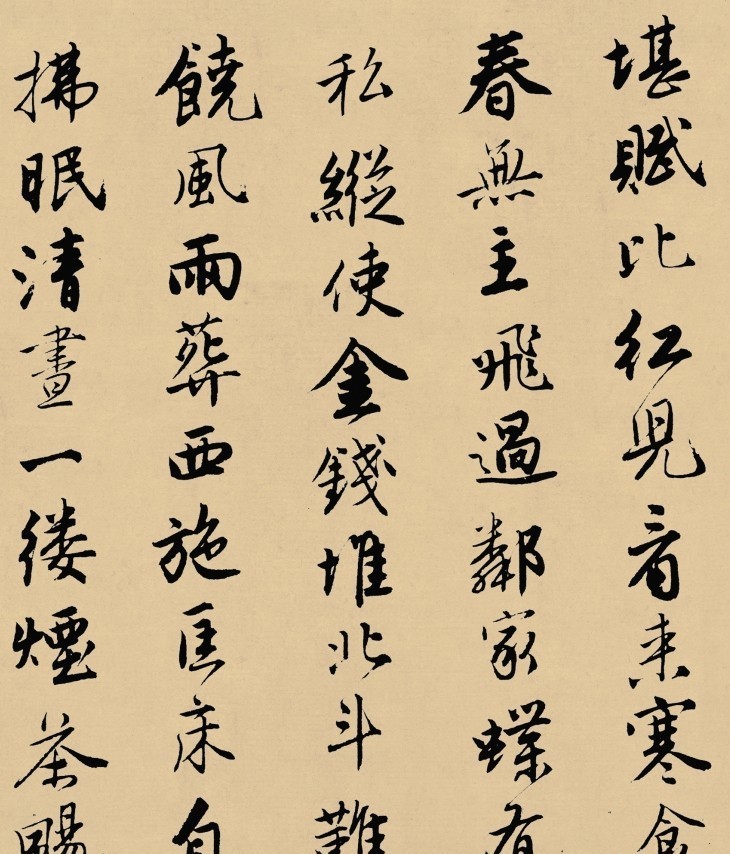 堪賦比紅兒看來寒食
春無主飛過鄰家蝶有
私縱使金錢堆北斗難
饒風雨葬西施匡床自
拂眠清晝一縷煙茶颺